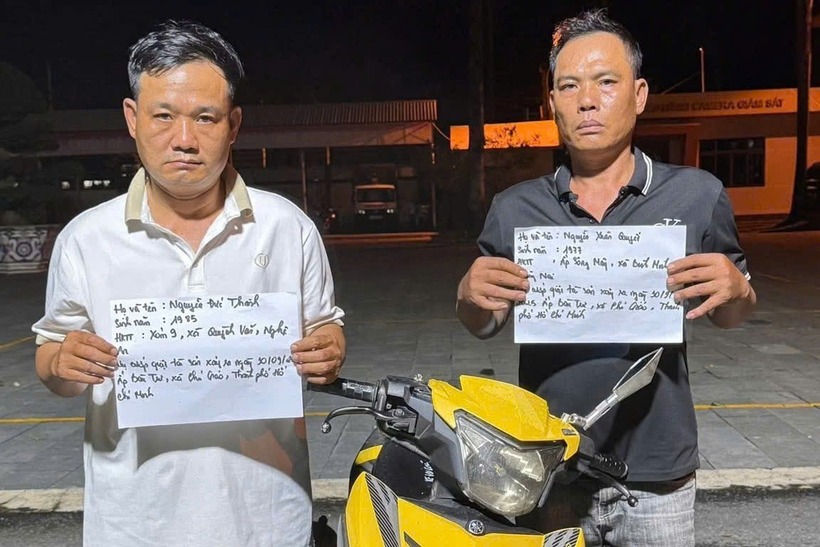 CAMERA GIÁM SÁT
Họ và tên : Nguyễn Đức Thanh
Sinh năm : 1985
HKTT : Xóm 9, xã Quỳnh Văn, Nghệ
An
cướp giật tài sản xảy ra ngày 30/09/
Ấp Bàu Tư, xã Phú Giáo, Thành phố Hồ
Chí Minh
Họ và tên : Nguyễn Xuân Quyết
Sinh năm : 1977
HKTT : Ấp Sông Mây, xã Bình Minh
Nai
cướp giật tài sản xảy ra ngày 30/9/
Ấp Bàu Tư, xã Phú Giáo, Thành
phố Hồ Chí Minh